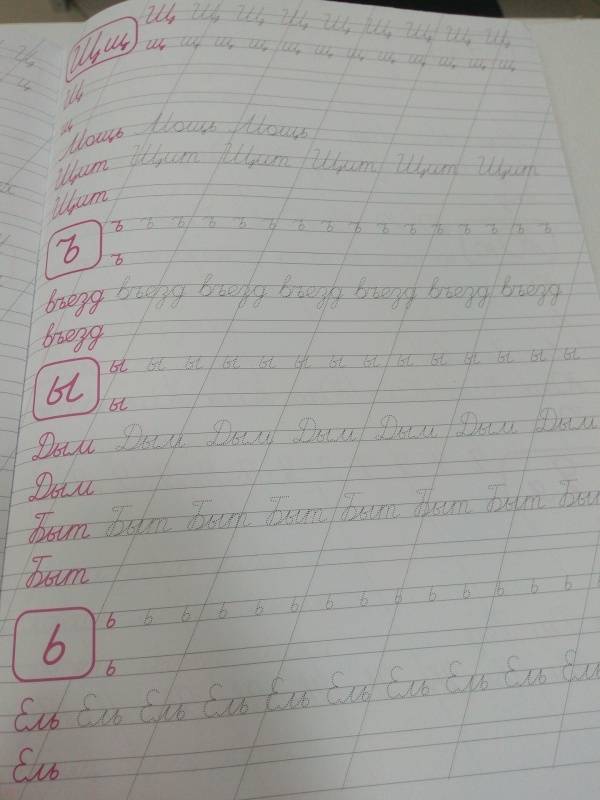 Щ Щ Щ Щ Щ Щ Щ Щ Щ
Щ щ
щ щ щ щ щ щ щ щ щ щ щ
Щ
щ
Мощь Мощь Мощь
Щит Щит Щит Щит Щит Щит
Щит
Ъ
ъ ъ ъ ъ ъ ъ ъ ъ ъ ъ ъ ъ ъ ъ ъ ъ
ъ
въезд въезд въезд въезд въезд въезд въезд
въезд
ы
ы ы ы ы ы ы ы ы ы ы ы ы ы ы
ы
Дым Дым Дым Дым Дым Дым Дым
Дым
Быт Быт Быт Быт Быт Быт Быт Бы
Быт
ь
ь ь ь ь ь ь ь ь ь ь ь ь ь ь ь
ь
Ель Ель Ель Ель Ель Ель Ель Ель Ель Ель
Ель